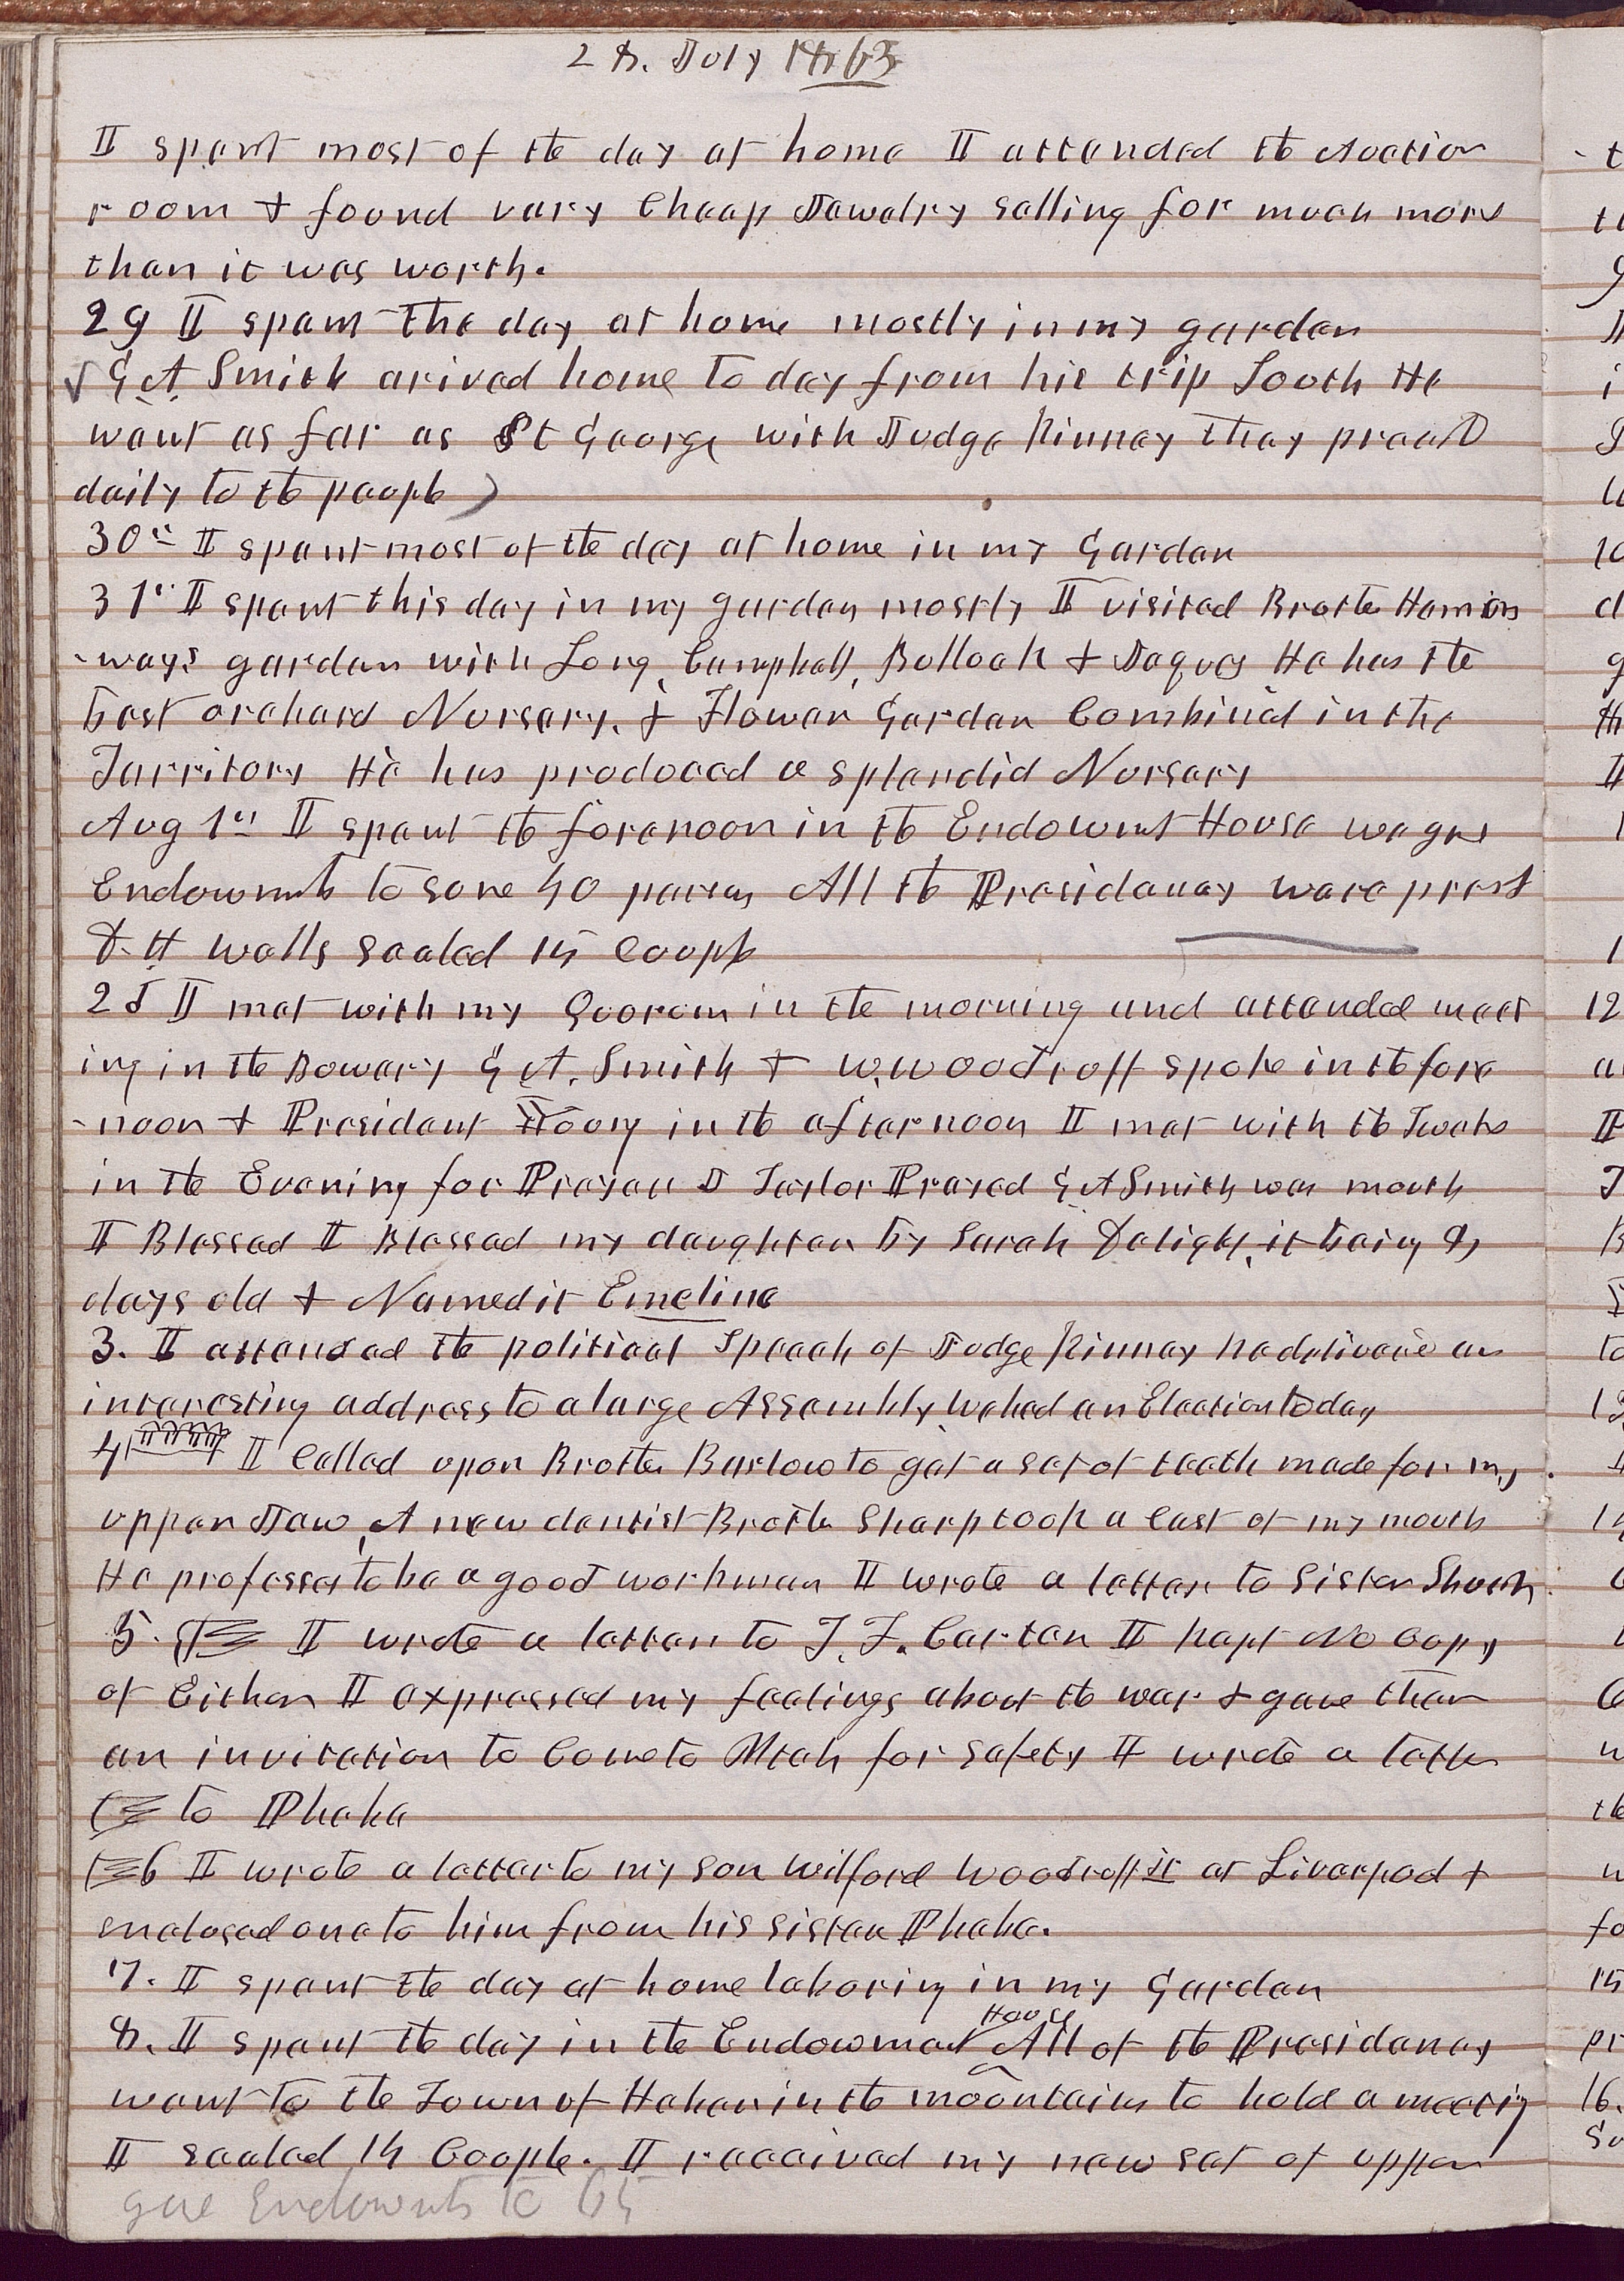 28. July 1863
I spent most of the day at home I attended the Auction
room & found vary Cheap Jewelry selling for much more
than it was worth.
29 I spent the day at home mostly in my garden
G A Smith arived home to day from his trip South He
went as far as St George with Judge Kinney they preachd
daily to the people)
30th I spent most of the day at home in my Garden
31st I spent this day in my garden mostly I visited Brother Hemin
-ways garden with Long, Campbell, Bullock & Jaques He has the
best orchard Nursery, & Flower Garden Combined in the
Territory He has produced a splendid Nursery
Aug 1st I spent the forenoon in the Endowmt House we gave
Endowmts to some 40 persons All the Presidency were prest
D. H wells sealed 15 Couple
2d I met with my Quorom in the morning and attended meet
ing in the Bowery G A. Smith & W. Woodruff spoke in the fore
-noon & President Young in the afternoon I met with the Twelve
in the Evening for Prayer J Taylor Prayed G A Smith was mouth
I Blessed I Blessed my daughter by Sarah Delight, it being 8
days old & Named it Emeline
3. I attended the political Speech of Judge Kinney he deliverd an
interesting address to a large Assembly we had an Election to day
4 I Called upon Brother Barlow to get a set of teeth made for my
upper Jaw, A new dentist Brother Sharp took a Cast of my mouth
He professes to be a good workman I wrote a letter to Sister Shuah
5. I wrote a letter to I. F. Carter I kept No Copy
of Either I expressed my feelings about the war & gave them
an invitation to Come to Utah for safety I wrote a letter
to Phebe
6 I wrote a letter to my son Wilford Woodruff Jr at Liverpool &
enclosed one to him from his sister Phebe.
7. I spent the day at home laboring in my Garden
8. I spent the day in the Endowment House All of the Presidency
went to the Town of Heber in the mountains to hold a meeting
I sealed 14 Couple. I received my new set of upper
gave Endowmts to 65